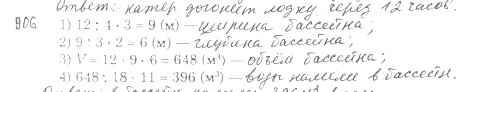 Ответ: катер догонет лодку через 12 часов.
906 1) 12 : 4 · 3 = 9 (м) — ширина бассейна;
2) 9 : 3 · 2 = 6 (м) — глубина бассейна;
3) V = 12 · 9 · 6 = 648 (м³) — объём бассейна;
4) 648 : 18 · 11 = 396 (м³) — воды налили в бассейн.